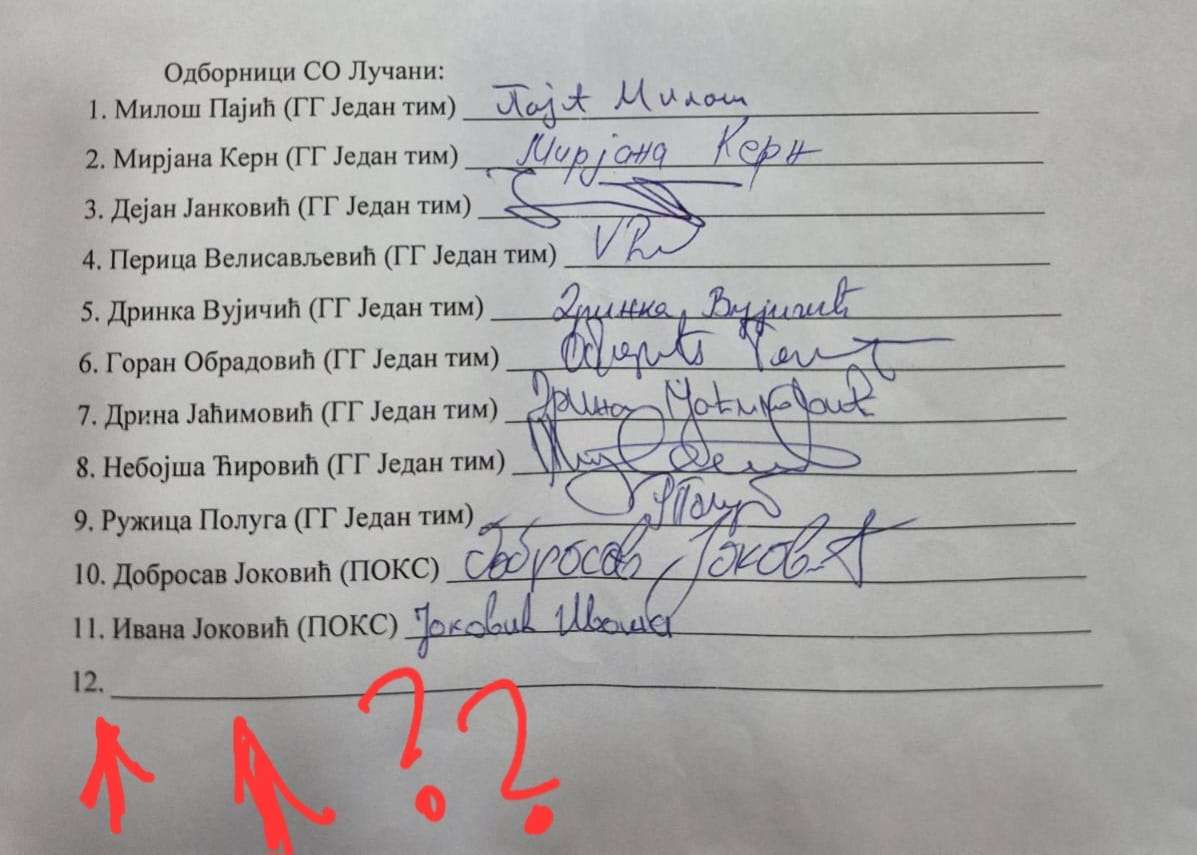 Одборници СО Лучани:
1. Милош Пајић (ГГ Један тим) Пајић Милош
2. Мирјана Керн (ГГ Један тим) Мирјана Керн
3. Дејан Јанковић (ГГ Један тим)
4. Перица Велисављевић (ГГ Један тим)
5. Дринка Вујичић (ГГ Један тим) Дринка Вујичић
6. Горан Обрадовић (ГГ Један тим)
7. Дрина Јаћимовић (ГГ Један тим) Дрина Јаћимовић
8. Небојша Ћировић (ГГ Један тим)
9. Ружица Полуга (ГГ Један тим)
10. Добросав Јоковић (ПОКС) Добросав Јоковић
11. Ивана Јоковић (ПОКС) Јоковић Ивана
12.
??